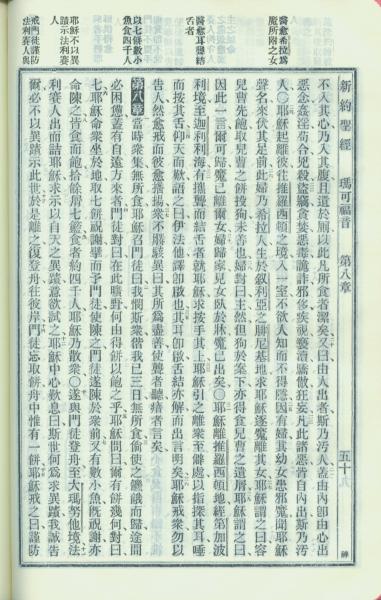 新約聖經 瑪可福音 第八章 五十八
醫愈希拉爲
魔所附之女
醫愈耳聾結
舌者
以七餅數小
魚食四千人
耶穌不以異
蹟示法利賽
人
戒門徒謹防
法利賽人與
不入其心乃入其腹且遺於厠以此凡所食者潔矣又曰由人出者斯乃汚人蓋由內卽由心出
惡念姦淫苟合兇殺盜竊貪婪惡毒詭詐邪侈疾視褻瀆驕傲狂妄凡此諸惡皆自內出斯乃汚
人〇耶穌起離彼往推羅西頓之境入一室不欲人知而不得隱因有婦其幼女患邪魔聞耶穌
聲名來伏其足前此婦乃希拉人生於叙利亞之腓尼基地求耶穌逐魔離其女耶穌謂之曰容
兒曹先飽取兒曹之餅投狗未善也婦對曰主然但狗於案下亦得食兒曹之遺屑耶穌謂之曰
因此一言爾可歸魔已離爾女婦歸家見女臥於牀魔已出矣〇耶穌離推羅西頓地經第加波
利境至迦利利海有攜聾而結舌者就耶穌求按手其上耶穌引之離衆至僻處以指探其耳唾
而捫其舌仰天而歎語之曰伊法他譯卽啟也其耳卽啟舌結亦解而出言明矣耶穌戒衆勿以
告人然愈戒而彼愈播揚衆不勝駭異曰其所爲盡善使聾者聽瘖者言矣
第八章 當時衆集無所食耶穌召門徒曰我憫斯衆偕我已三日無所食倘使之饑餓而歸途間
必困憊蓋有自遠方來者門徒對曰在此曠野何由得餅以飽之乎耶穌問曰爾有餅幾何對曰
七耶穌命衆坐於地取七餅祝謝擘而予門徒使陳之門徒遂陳於衆前又有數小魚旣祝謝亦
命陳之皆食而飽拾餘屑七籃食者約四千人耶穌乃散衆〇遂與門徒登舟至大瑪努他境法
利賽人出而詰耶穌求示以自天之異蹟意欲試之耶穌中心歎息曰斯世何爲求異蹟我誠告
爾必不以異蹟示此世於是離之復登舟往彼岸門徒忘取餅舟中惟有一餅耶穌戒之曰謹防